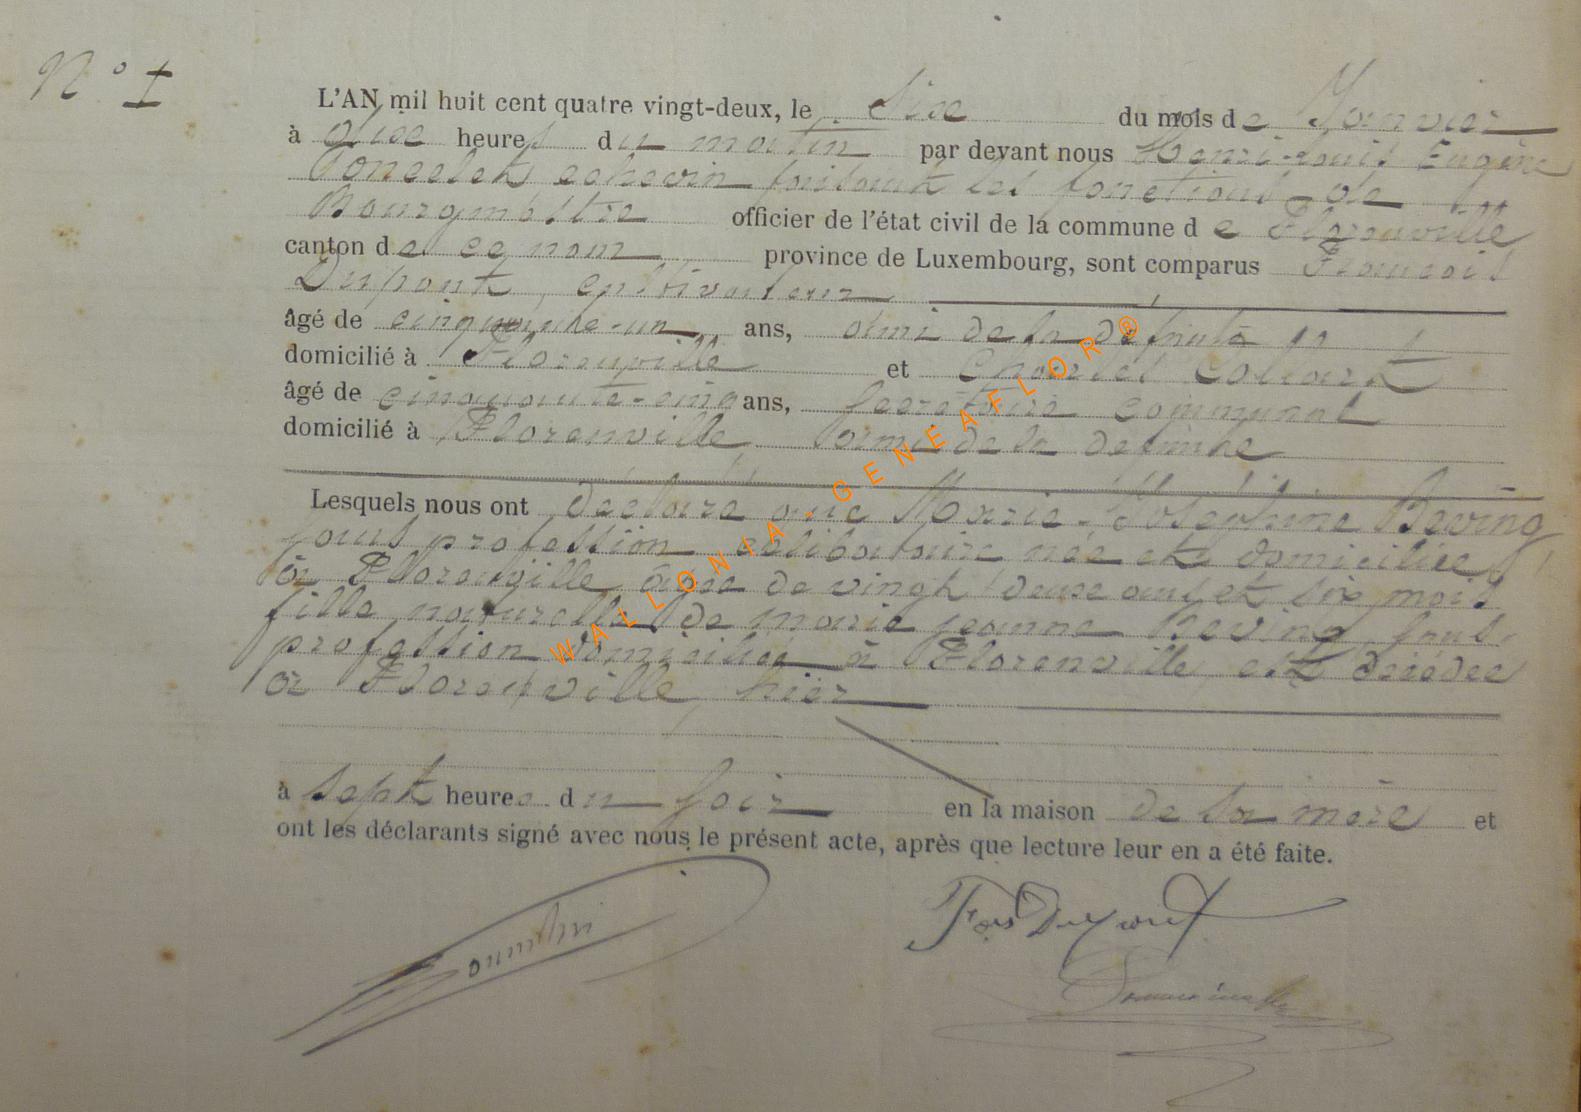 N° 1
L'AN mil huit cent quatre vingt-deux, le Six du mois de Janvier
à onze heures du matin par devant nous Henri-Louis Eugène
Poncelet echevin faisant les fonctions de
Bourgmestre officier de l'état civil de la commune de Florenville
canton de ce nom province de Luxembourg, sont comparus François
Dupont, cultivateur
âgé de cinquante-un ans, ami de la défunte
domicilié à Florenville et Charles Collart
âgé de cinquante-cinq ans, Secrétaire communal
domicilié à Florenville ami de la défunte
Lesquels nous ont déclaré que Marie-Joséphine Beving
sans profession célibataire née et domiciliée
à Florenville, âgée de vingt deux ans et six mois
fille naturelle de marie jeanne Beving, sans
profession domiciliée à Florenville, est décédée
à Florenville, hier
à sept heures du soir en la maison de la mère et
ont les déclarants signé avec nous le présent acte, après que lecture leur en a été faite.
Fçois Dupont
WALLONIA - GENEAFLOR ®